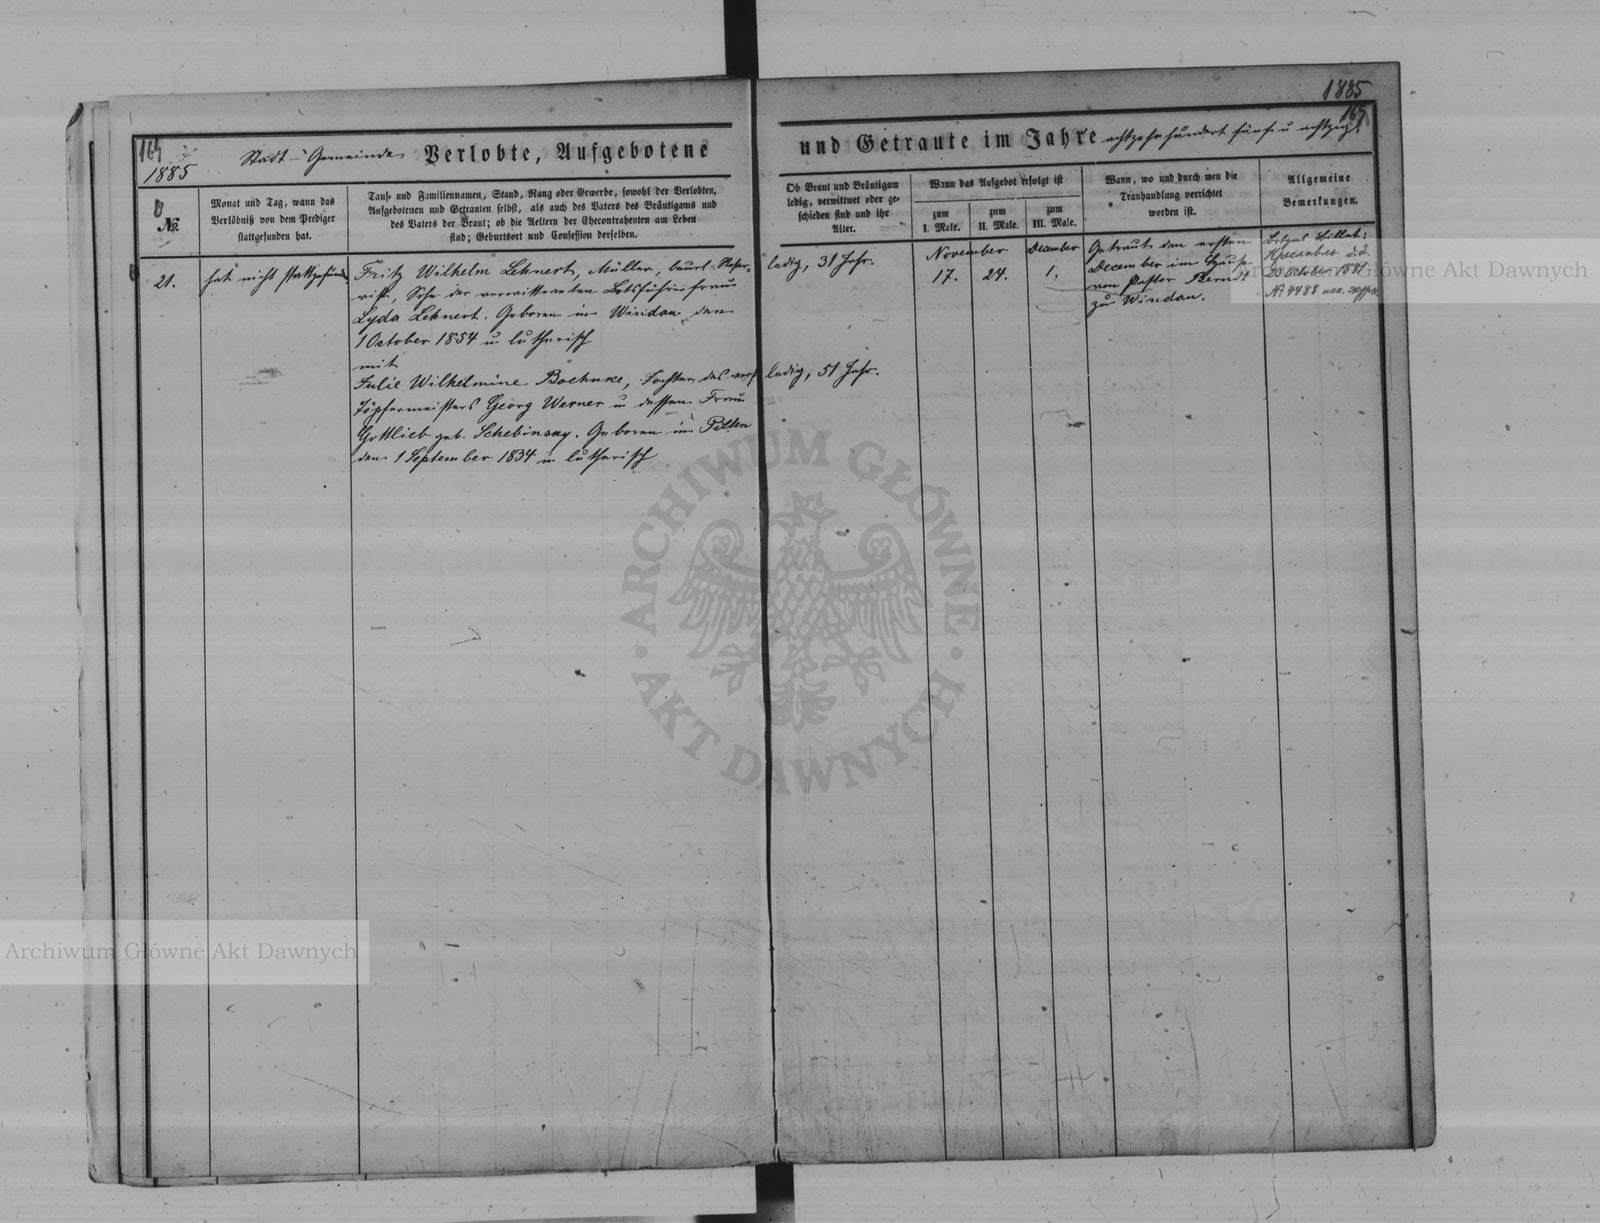 1885
165
164
1885
Stadt-Gemeinde Verlobte, Aufgebotene
und Getraute im Jahre achtzehnhundert fünf u achtzig.
No.
Monat und Tag, wann das
Verlöbniß von dem Prediger
stattgefunden hat.
Tauf- und Familiennamen, Stand, Rang oder Gewerbe, sowohl der Verlobten,
Aufgebotenen und Getrauten selbst, als auch des Vaters des Bräutigams und
des Vaters der Braut; ob die Aeltern der Ehecontrahenten am Leben
sind; Geburtsort und Confession derselben.
Ob Braut und Bräutigam
ledig, verwittwet oder ge-
schieden sind und ihr
Alter.
Wann das Aufgebot erfolgt ist
zum
I. Male.
zum
II. Male.
zum
III. Male.
Wann, wo und durch wen die
Trauhandlung verrichtet
worden ist.
Allgemeine
Bemerkungen.
21.
hat nicht stattgefunden
Fritz Wilhelm Lehnert, Müller, beurl. Reser-
vist, Sohn der verwittweten
Lyda Lehnert. Geboren in Windau den
1 October 1854 u. lutherisch
mit
Julie Wilhelmine Boehnke, Tochter des verst
Töpfermeisters Georg Werner u dessen Frau
Gottlieb geb. Schebinsky. Geboren in Pilten
den 1 September 1834 u lutherisch
ledig, 31 Jahr.
ledig, 51 Jahr.
November
17.
24.
December
1.
Getraut den ersten
December im Hause
von Pastor Berndt
zu Windau.
Billet:
d.d.
23 October 1877
No 4488
Archiwum Główne Akt Dawnych
ARCHIWUM GŁÓWNE · AKT DAWNYCH ·
Archiwum Główne Akt Dawnych